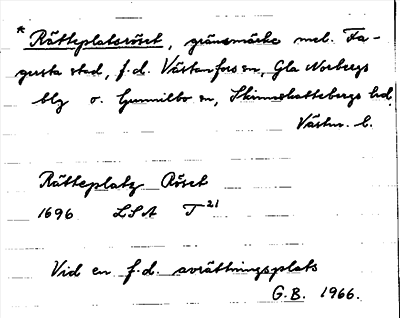 * Rätteplatsröset, gränsmärke mel. Fa-
gersta stad, f.d. Västanfors sn, Gla Norbergs
blg o. Gunnilbo sn, Skinnskattebergs hd,
Västm. l.
Rätteplatz Röset
1696 LSA T 21
Vid en f.d. avrättningsplats
G.B. 1966.